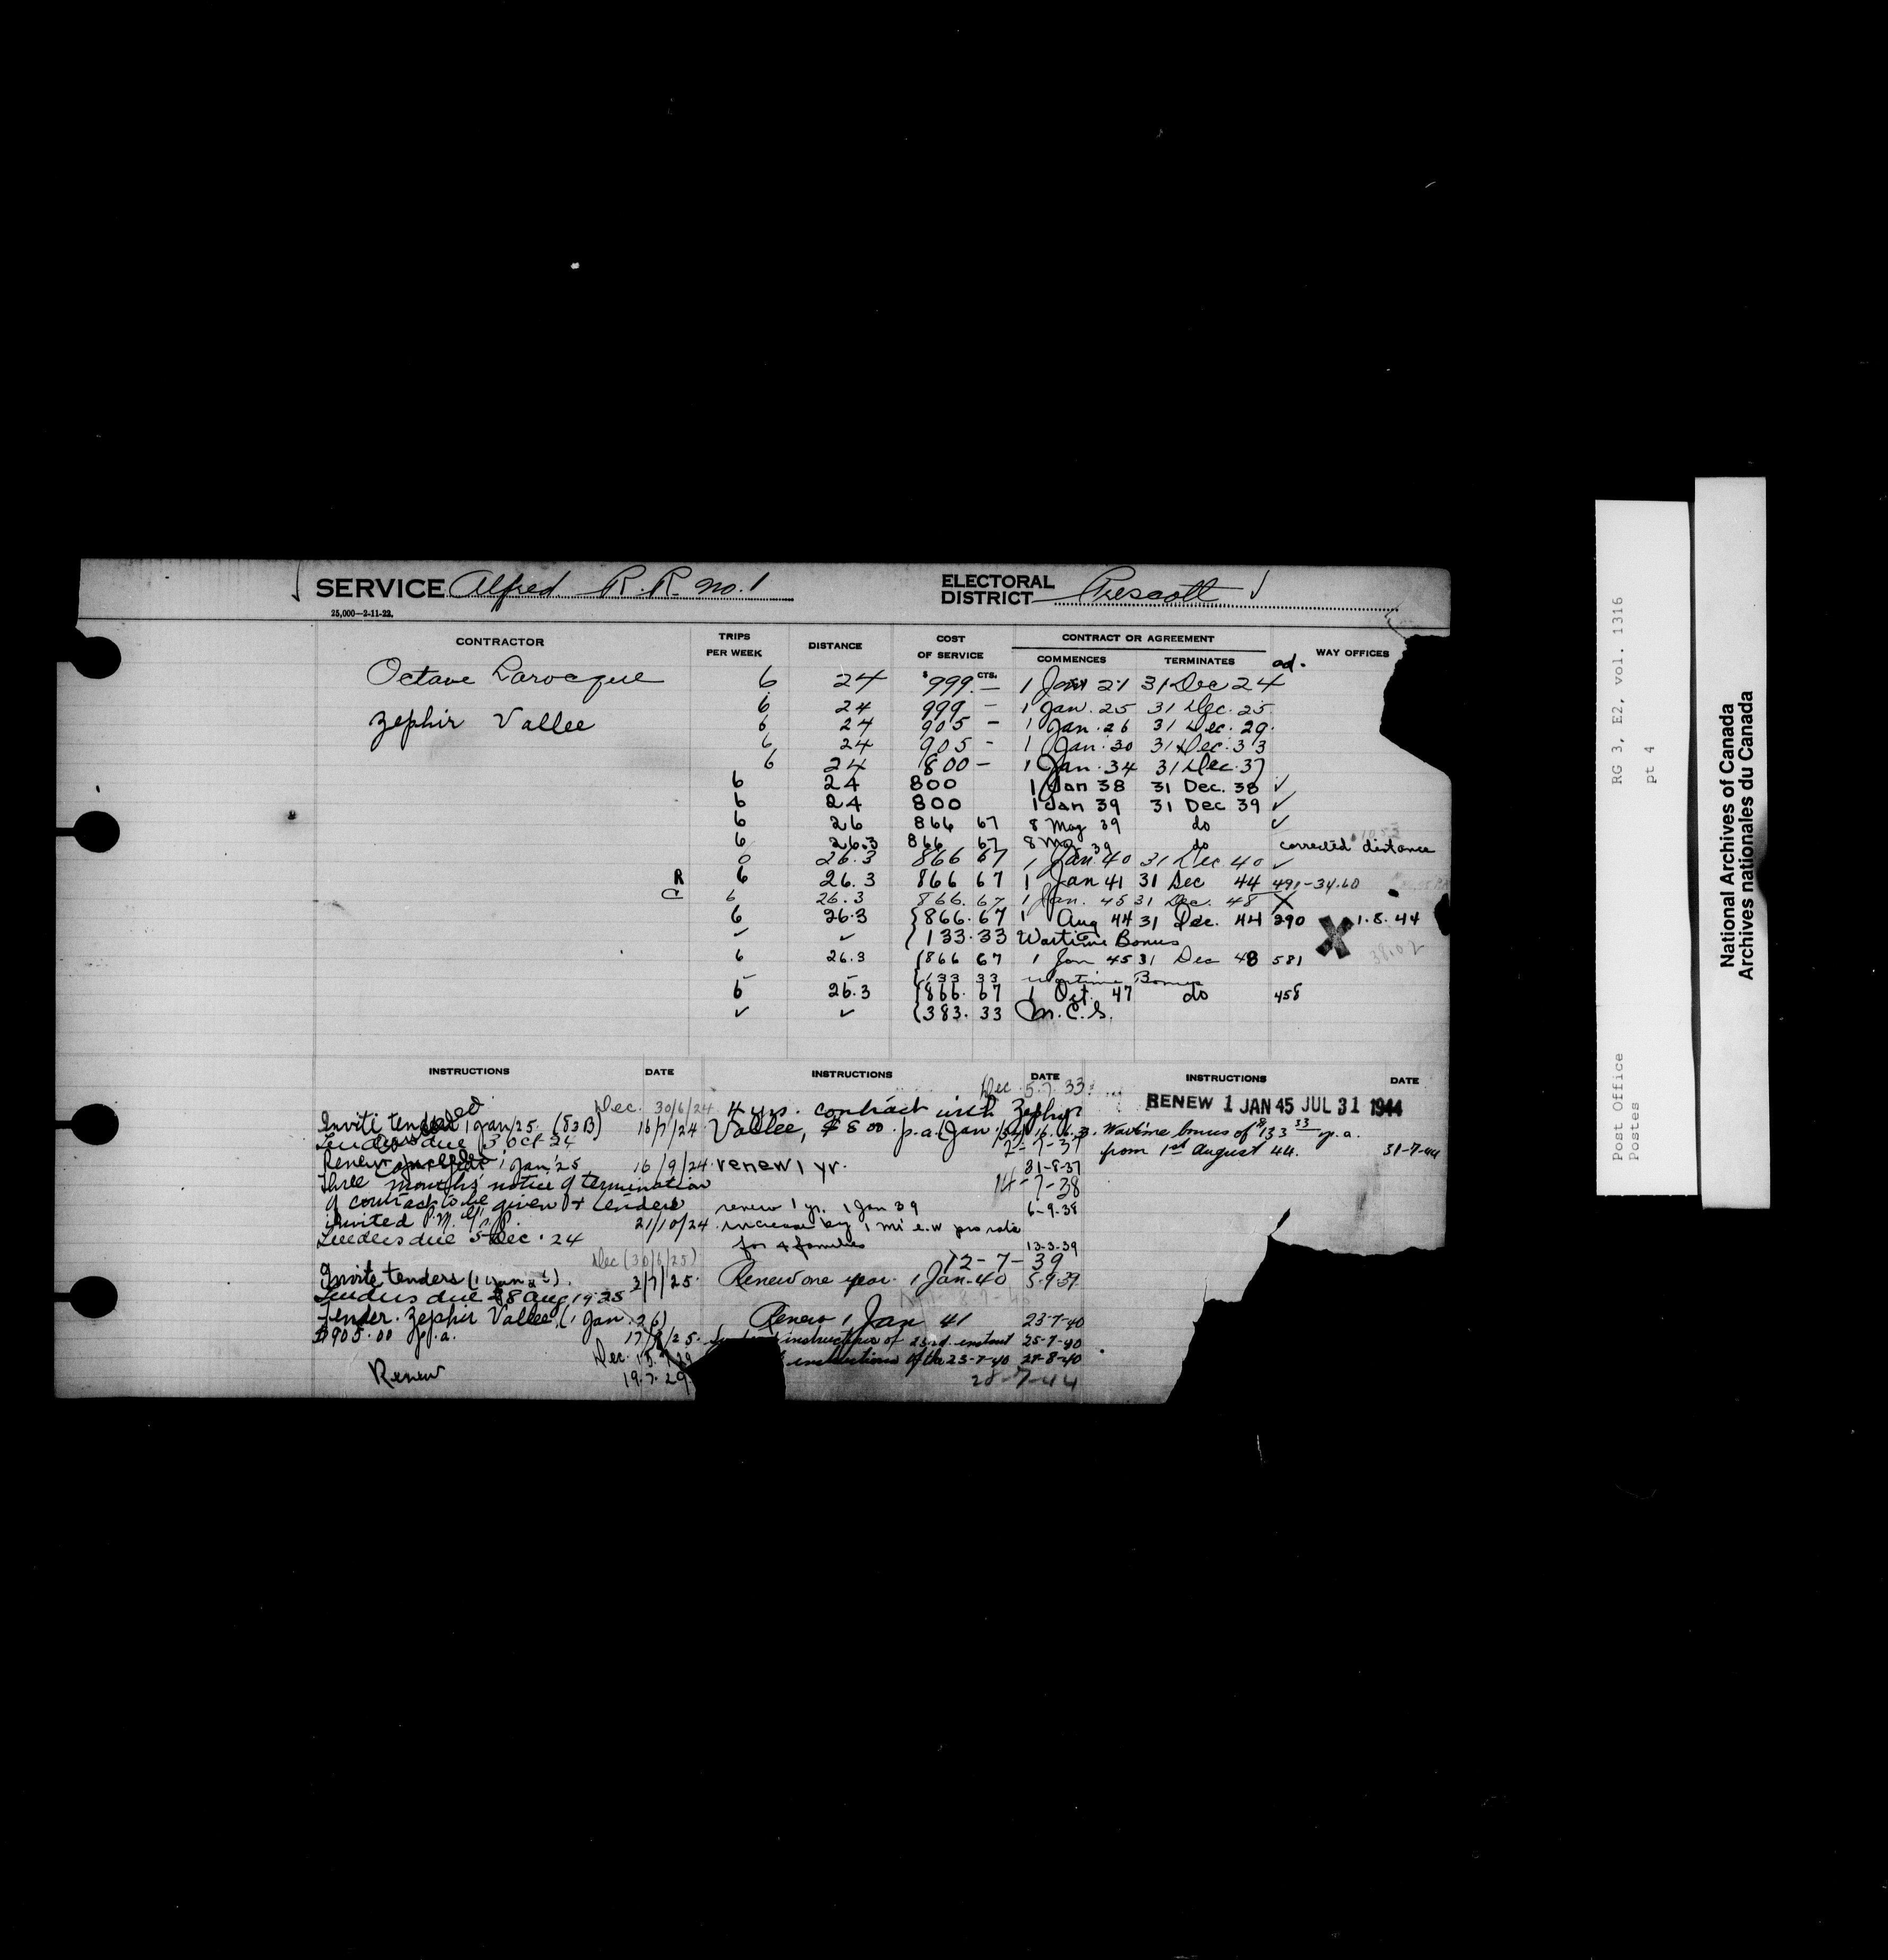 SERVICE Alfred R.R. No. 1 ELECTORAL DISTRICT Prescott
25,000—2-11-22.
CONTRACTOR TRIPS PER WEEK DISTANCE COST OF SERVICE CONTRACT OR AGREEMENT COMMENCES TERMINATES WAY OFFICES
ad.
Octave Larocque 6 24 $999.— CTS. 1 Jan 21 31 Dec 24
6 24 999 — 1 Jan. 25 31 Dec. 25
Zephir Vallee 6 24 905 — 1 Jan. 26 31 Dec. 29.
6 24 905 - 1 Jan. 30 31 Dec. 33
6 24 800 — 1 Jan. 34 31 Dec. 37
6 24 800 1 Jan 38 31 Dec. 38 ✓
6 24 800 1 Jan 39 31 Dec 39 ✓
6 26 866 67 8 May 39 do ✓
6 26.3 866 67 8 May 39 do corrected distance
6 26.3 866 67 1 Jan. 40 31 Dec. 40 ✓
R 6 26.3 866 67 1 Jan 41 31 Dec 44 491-34.60
C 6 26.3 866.67 1 Jan. 45 31 Dec. 48 X
6 26.3 {866.67 1 Aug 44 31 Dec. 44 290 X 1.8.44
✓ ✓ {133.33 Wartime Bonus
6 26.3 {866 67 1 Jan 45 31 Dec 48 581
{133 33 Wartime Bonus
6 26.3 {866. 67 1 Oct. 47 do 458
✓ ✓ {383. 33 M.C.S.
INSTRUCTIONS DATE INSTRUCTIONS DATE INSTRUCTIONS DATE
Dec. 30/6/24
Invite tenders 1 Jan/25. (83B) 16/7/24
Tenders due 3 Oct 24
Renew 1 Jan. '25 16/9/24.
Three months' notice of termination
of contract to be given & tenders
invited 21/10/24
Tenders due 5 Dec. 24
Dec (30/6/25)
Invite tenders (1 Jan 26). 2/7/25.
Tenders due 28 Aug. 1925
Tender. Zephir Vallee, (1 Jan. 26)
$905.00 p.a. 17/9/25.
Dec. 15.7.29
Renew 19.7.29.
Dec. 5.7.33.
4 yrs. contract with Zephyr
Vallee, $800 p.a. (Jan. /34) 16.6.3.
2-7-37
renew 1 yr. 31-8-37
14-7-38
renew 1 yr. 1 Jan 39 6-9-38
increase by 1 mi e.w pro rata
for 4 families 13-3-39
12-7-39
Renew one year. 1 Jan-40 5-9-39
Renew 1 Jan 41 23-7-40
instructions of 23rd instant 25-7-40
instructions of the 23-7-40 28-8-40
28-7-44
RENEW 1 JAN 45 JUL 31 1944
Wartime bonus of $133 33 p.a.
from 1st August 44. 31-7-44
RG 3, E2, vol. 1316
pt 4
Post Office
Postes
National Archives of Canada
Archives nationales du Canada